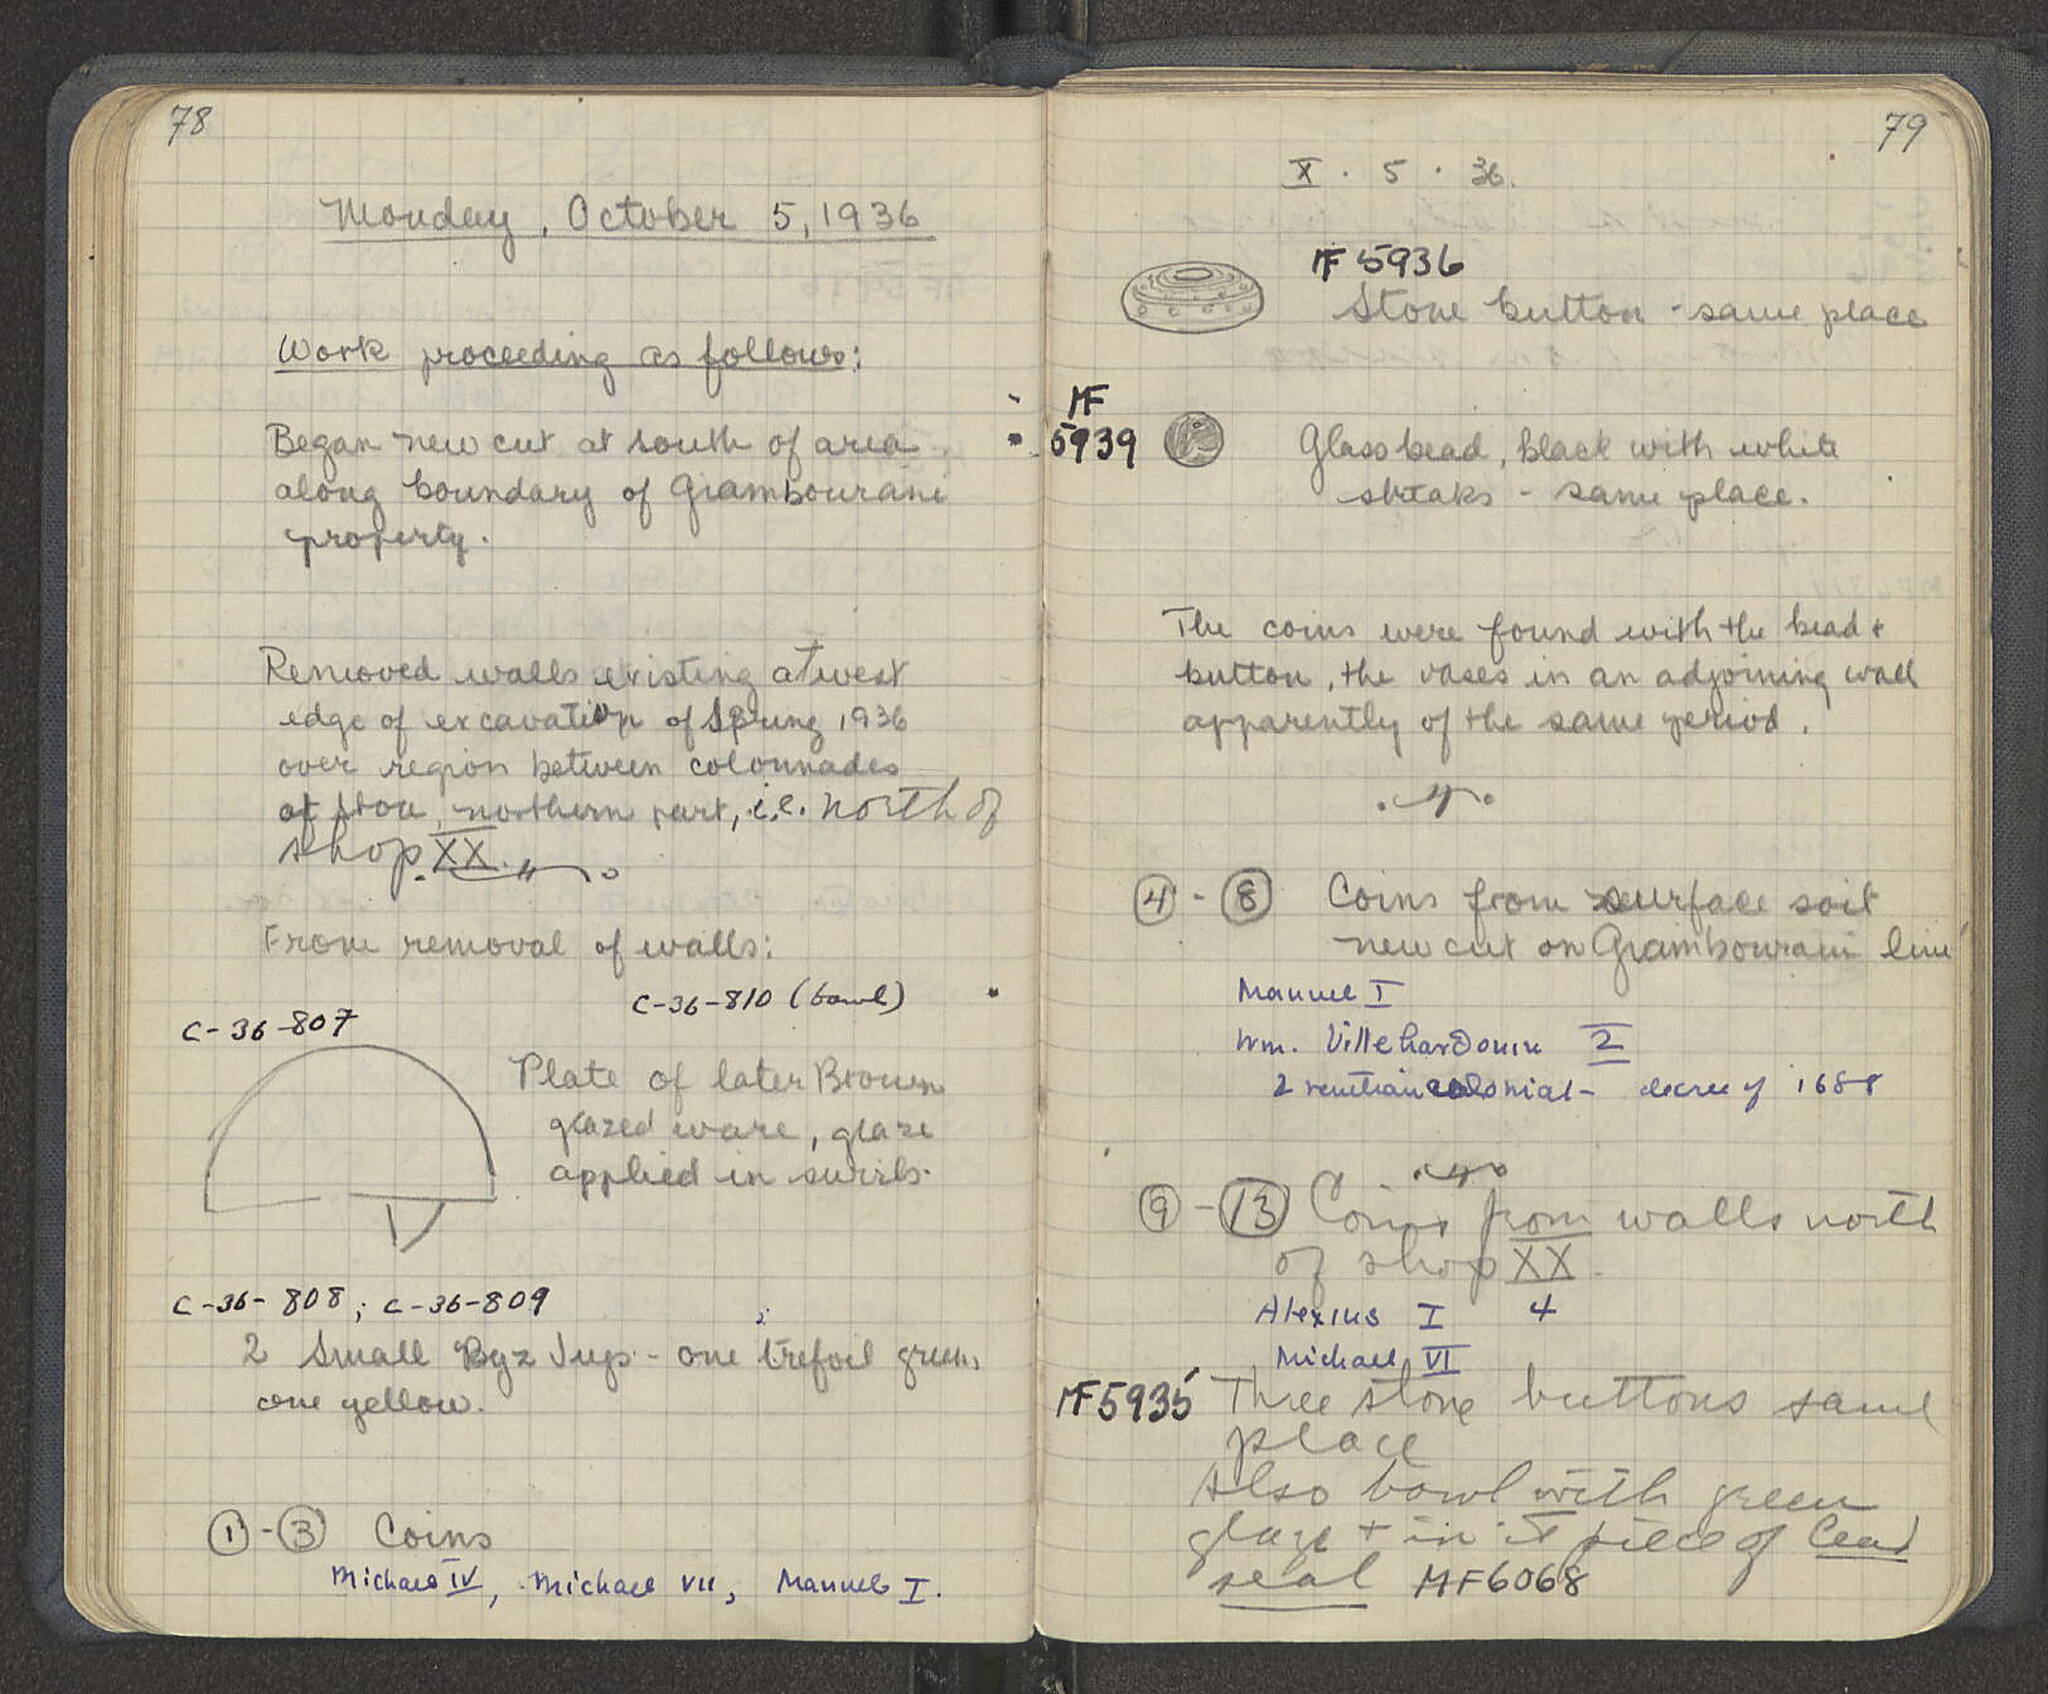 78
Monday, October 5, 1936
Work proceeding as follows:
Began new cut at south of area
along boundary of Giambourani
property.
Removed walls existing at west
edge of excavation of Spring 1936
over region between colonnades
of Stoa, northern part, i.e. north of
shop XX.
From removal of walls:
C-36-810 (bowl)
C-36-807
Plate of later Brown
glazed ware, glaze
applied in swirls.
C-36-808; C-36-809
2 Small Byz Jugs - one trefoil green,
one yellow.
① - ③ Coins
Michael IV, Michael VII, Manuel I.
79
X · 5 · 36.
MF 5936
Stone button - same place
MF
5939
Glass bead, black with white
streaks - same place.
The coins were found with the bead +
button, the vases in an adjoining wall
apparently of the same period.
④ - ⑧ Coins from surface soil
new cut on Giambourani line
Manuel I
Wm. Villehardouin 2
2 venetian colonial - decree of 1688
⑨ - ⑬ Coins from walls north
of shop XX.
Alexius I 4
Michael VI
MF5935 Three stone buttons same
place
Also bowl with green
glaze + in it piece of lead
seal MF6068